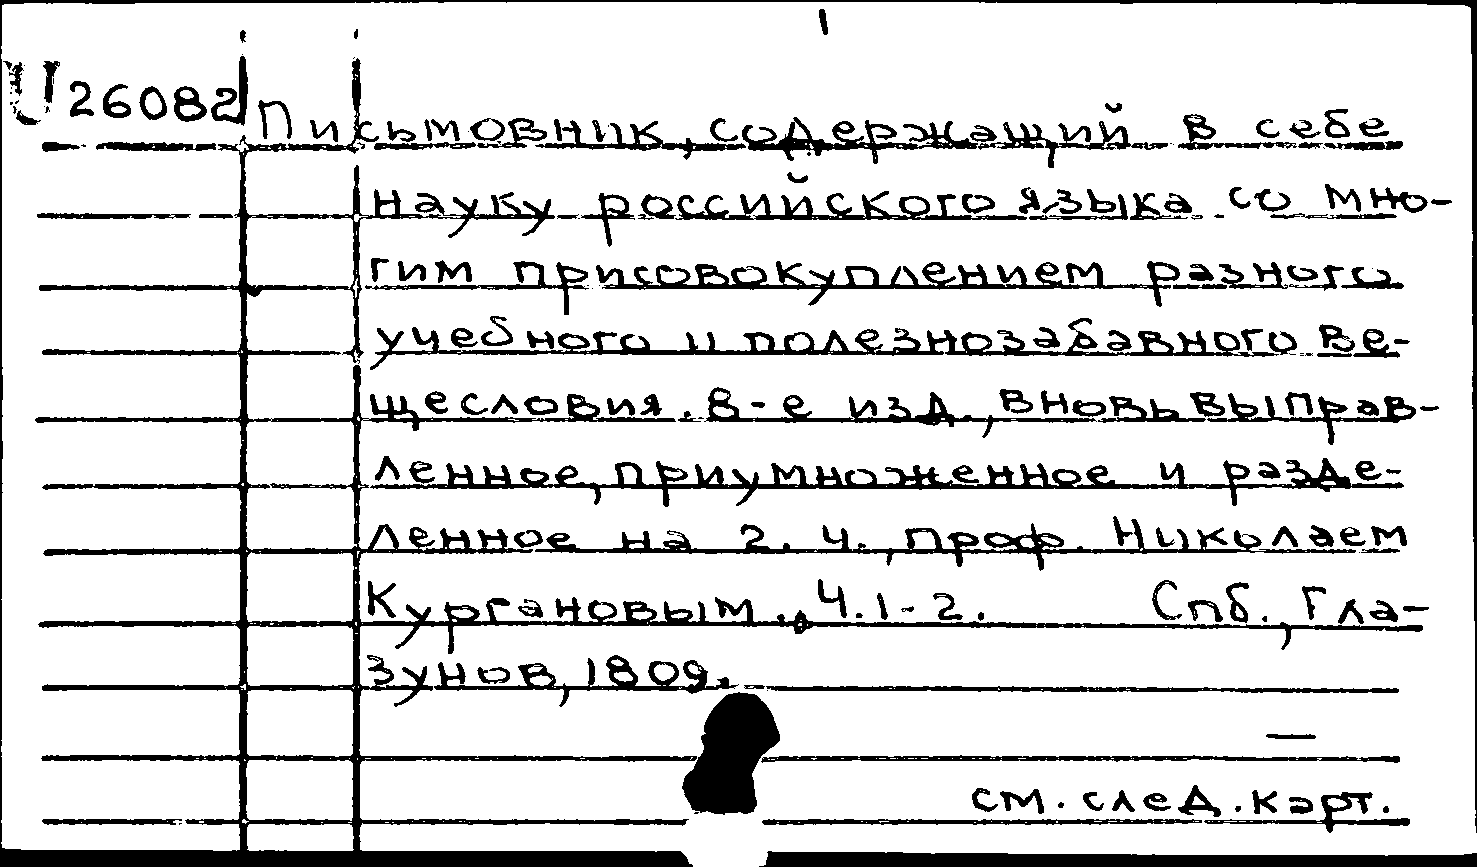 1
U 26082 Письмовник, содержащий в себе
науку российского языка со мно-
гим присовокуплением разного
учебного и полезнозабавного ве-
щесловия. 8-е изд., вновь выправ-
ленное, приумноженное и разде-
ленное на 2. ч., проф. Николаем
Кургановым. Ч.1-2. Спб., Гла-
зунов, 1809.
—
см. след. карт.